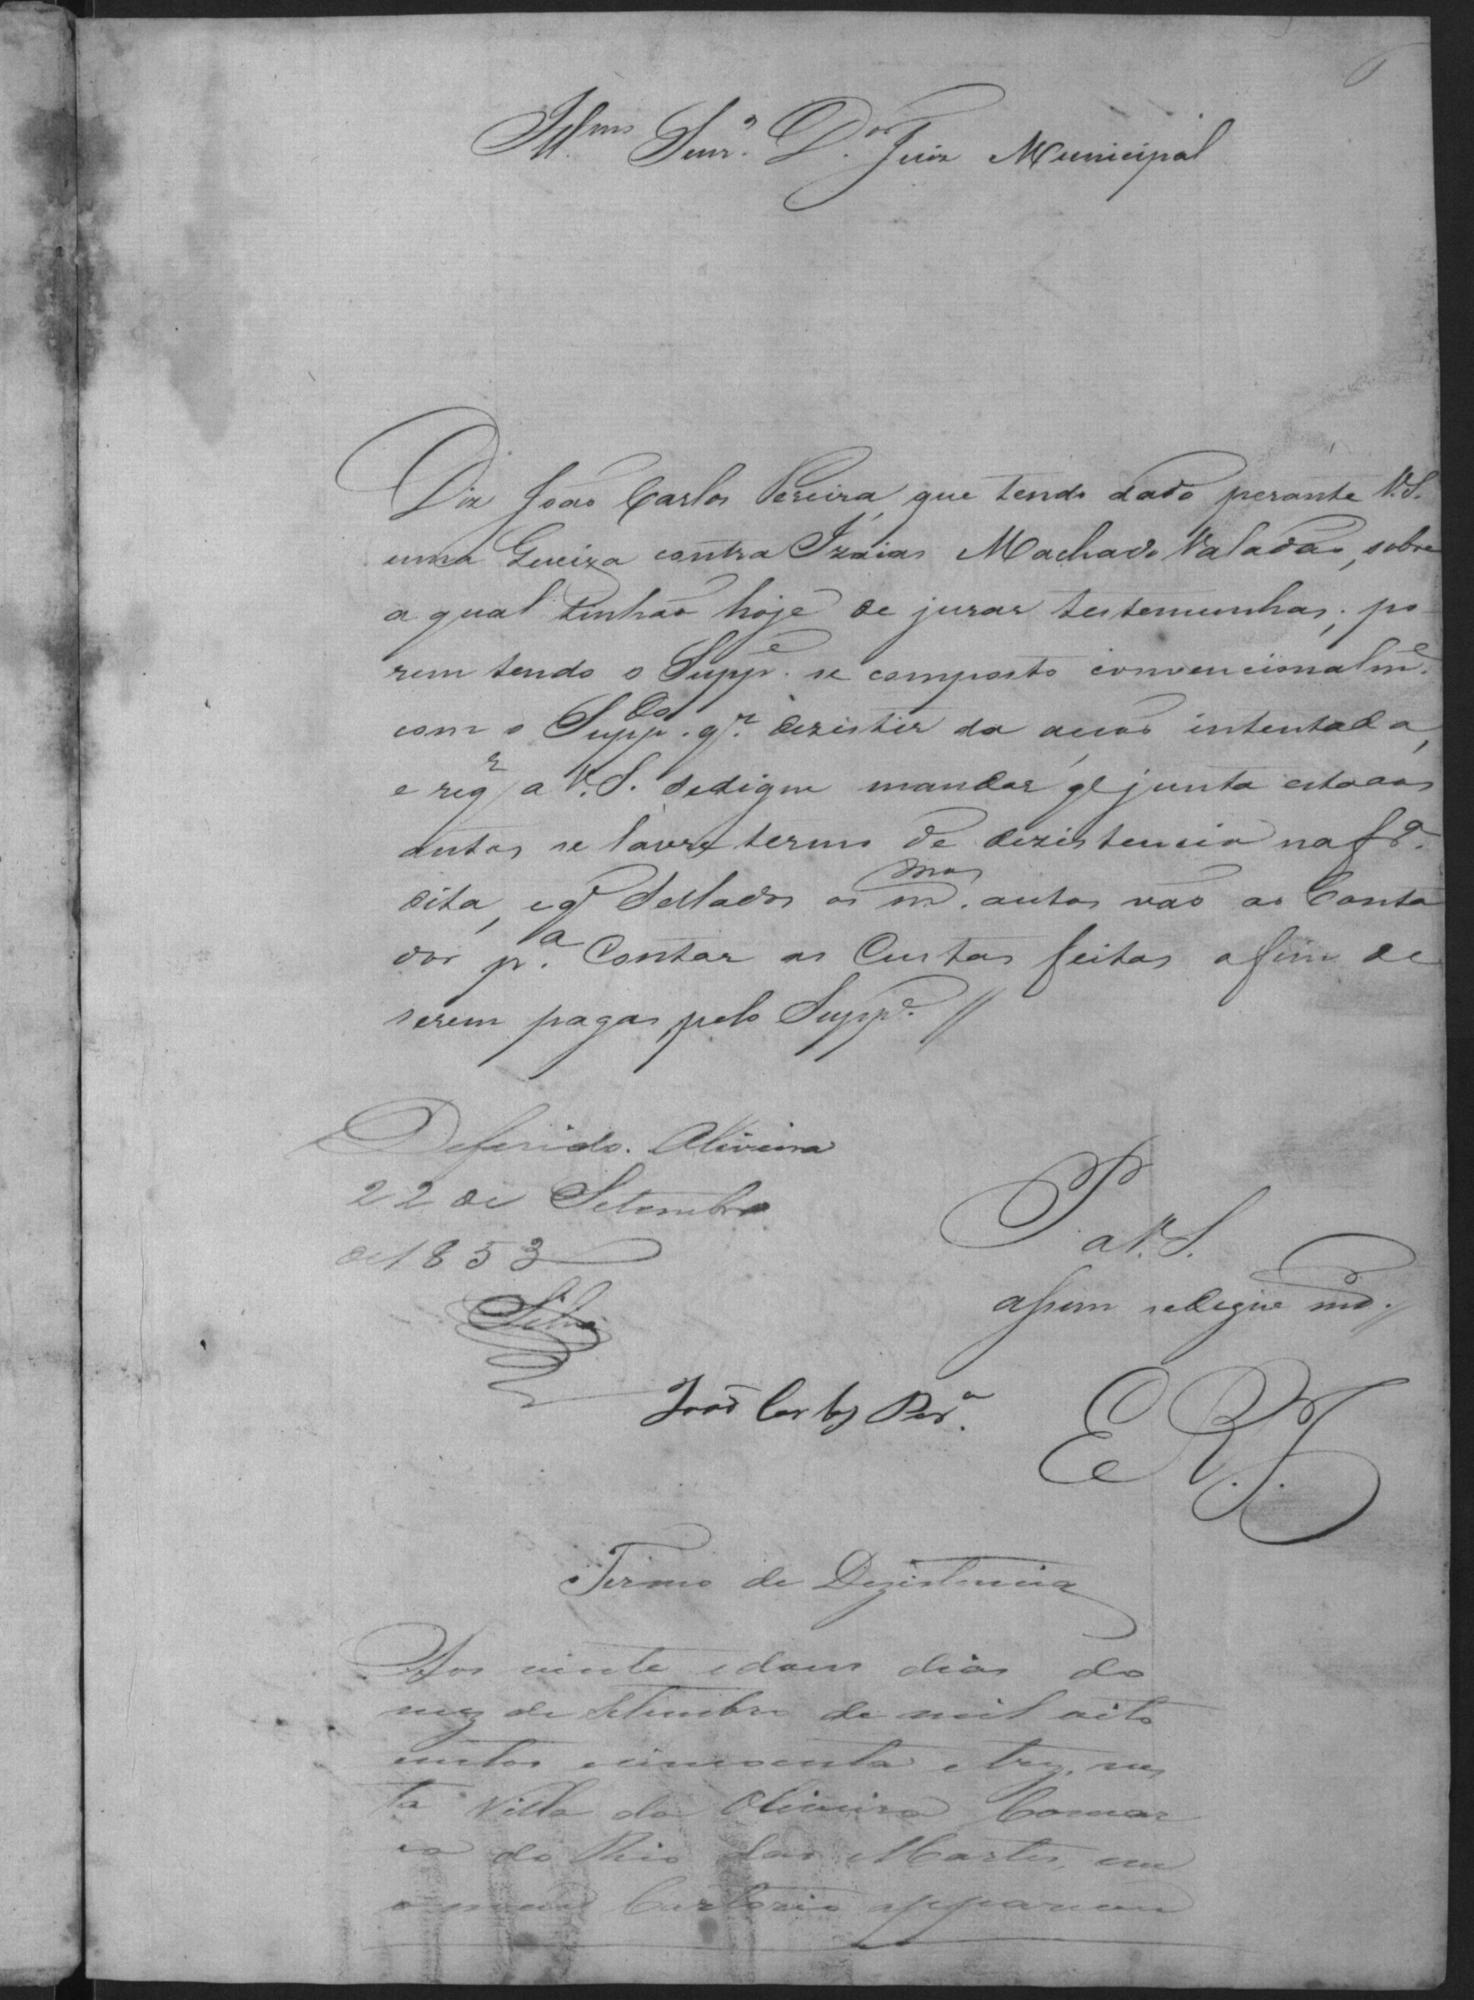 Ill.mo Senr. D.or Juiz Municipal
Diz João Carlos Pereira, que tendo dado perante V.S.
uma Queixa contra Izaias Machado Valadão, sobre
a qual tinhão hoje de jurar testemunhas; po
rem tendo o Supp.e se composto convencionalm.e
com o Supp.do q.r dezistir da acção intentada,
e req.r a V.S. sedigne mandar q̃ junta esta aos
autos se lavre termo de dezistencia na f.a
dita, e q̃ Sellados os m.mos autos vão ao Conta
dor p.a Contar as Custas feitas afim de
serem pagas pelo Supp.e //
Deferido. Oliveira
22 de Setembro
de 1853
Silva
P. a V.S.
assim sedigne md.o //
João Carlos Per.a
E R. J.
Termo de Dezistencia
Aos vinte e dous dias do
mez de Setembro de mil oito
centos cincoenta e trez, nes
ta Villa da Oliveira Comar
ca do Rio das Mortes, em
o meu Cartorio appareceu